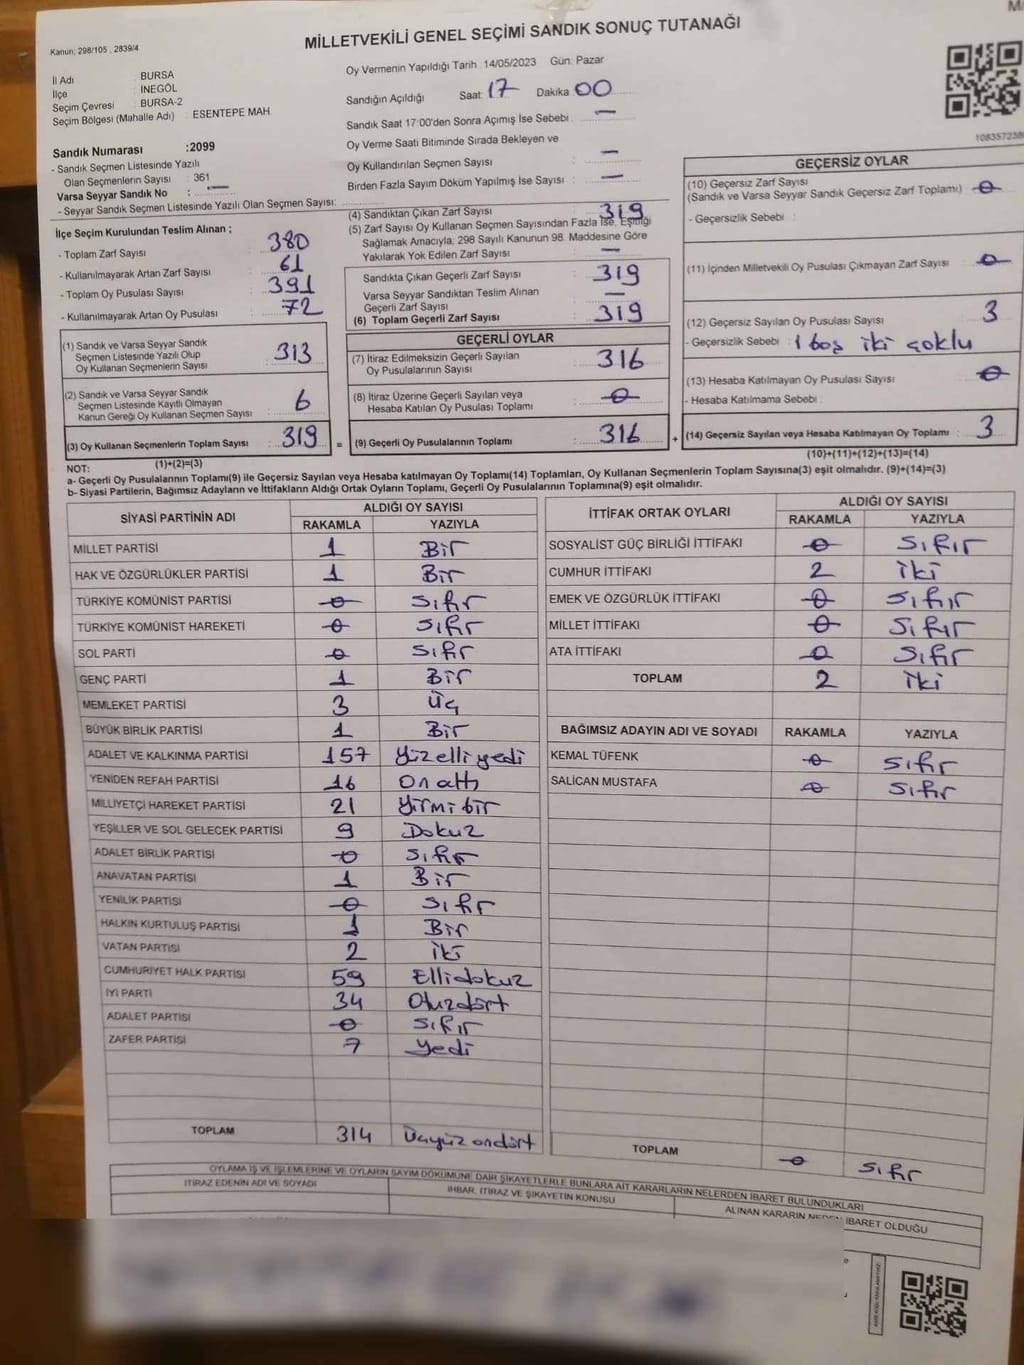 Kanun: 298/105 , 2839/4
MİLLETVEKİLİ GENEL SEÇİMİ SANDIK SONUÇ TUTANAĞI
İl Adı : BURSA
İlçe : İNEGÖL
Seçim Çevresi : BURSA-2
Seçim Bölgesi (Mahalle Adı) : ESENTEPE MAH.
Sandık Numarası :2099
- Sandık Seçmen Listesinde Yazılı
Olan Seçmenlerin Sayısı : 361
Varsa Seyyar Sandık No : —
- Seyyar Sandık Seçmen Listesinde Yazılı Olan Seçmen Sayısı:
Oy Vermenin Yapıldığı Tarih : 14/05/2023 Gün: Pazar
Sandığın Açıldığı Saat: 17 Dakika 00
Sandık Saat 17:00'den Sonra Açımış İse Sebebi : —
Oy Verme Saati Bitiminde Sırada Bekleyen ve
Oy Kullandırılan Seçmen Sayısı : —
Birden Fazla Sayım Döküm Yapılmış İse Sayısı : —
İlçe Seçim Kurulundan Teslim Alınan ;
- Toplam Zarf Sayısı : 380
- Kullanılmayarak Artan Zarf Sayısı : 61
- Toplam Oy Pusulası Sayısı : 391
- Kullanılmayarak Artan Oy Pusulası : 72
(1) Sandık ve Varsa Seyyar Sandık
Seçmen Listesinde Yazılı Olup
Oy Kullanan Seçmenlerin Sayısı : 313
(2) Sandık ve Varsa Seyyar Sandık
Seçmen Listesinde Kayıtlı Olmayan
Kanun Gereği Oy Kullanan Seçmen Sayısı : 6
(3) Oy Kullanan Seçmenlerin Toplam Sayısı : 319 =
(1)+(2)=(3)
(4) Sandıktan Çıkan Zarf Sayısı : 319
(5) Zarf Sayısı Oy Kullanan Seçmen Sayısından Fazla İse, Eşitliği
Sağlamak Amacıyla, 298 Sayılı Kanunun 98. Maddesine Göre
Yakılarak Yok Edilen Zarf Sayısı : —
Sandıkta Çıkan Geçerli Zarf Sayısı : 319
Varsa Seyyar Sandıktan Teslim Alınan
Geçerli Zarf Sayısı : —
(6) Toplam Geçerli Zarf Sayısı : 319
GEÇERLİ OYLAR
(7) İtiraz Edilmeksizin Geçerli Sayılan
Oy Pusulalarının Sayısı : 316
(8) İtiraz Üzerine Geçerli Sayılan veya
Hesaba Katılan Oy Pusulası Toplamı : 0
(9) Geçerli Oy Pusulalarının Toplamı : 316 +
GEÇERSİZ OYLAR
(10) Geçersiz Zarf Sayısı
(Sandık ve Varsa Seyyar Sandık Geçersiz Zarf Toplamı) : 0
- Geçersizlik Sebebi :
(11) İçinden Milletvekili Oy Pusulası Çıkmayan Zarf Sayısı : 0
(12) Geçersiz Sayılan Oy Pusulası Sayısı : 3
- Geçersizlik Sebebi : 1 boş iki çoklu
(13) Hesaba Katılmayan Oy Pusulası Sayısı : 0
- Hesaba Katılmama Sebebi :
(14) Geçersiz Sayılan veya Hesaba Katılmayan Oy Toplamı : 3
(10)+(11)+(12)+(13)=(14)
NOT:
a- Geçerli Oy Pusulalarının Toplamı(9) ile Geçersiz Sayılan veya Hesaba katılmayan Oy Toplamı(14) Toplamları, Oy Kullanan Seçmenlerin Toplam Sayısına(3) eşit olmalıdır. (9)+(14)=(3)
b- Siyasi Partilerin, Bağımsız Adayların ve İttifakların Aldığı Ortak Oyların Toplamı, Geçerli Oy Pusulalarının Toplamına(9) eşit olmalıdır.
SİYASİ PARTİNİN ADI ALDIĞI OY SAYISI
RAKAMLA YAZIYLA
MİLLET PARTİSİ 1 Bir
HAK VE ÖZGÜRLÜKLER PARTİSİ 1 Bir
TÜRKİYE KOMÜNİST PARTİSİ 0 Sıfır
TÜRKİYE KOMÜNİST HAREKETİ 0 Sıfır
SOL PARTİ 0 Sıfır
GENÇ PARTİ 1 Bir
MEMLEKET PARTİSİ 3 Üç
BÜYÜK BİRLİK PARTİSİ 1 Bir
ADALET VE KALKINMA PARTİSİ 157 Yüzelliyedi
YENİDEN REFAH PARTİSİ 16 Onaltı
MİLLİYETÇİ HAREKET PARTİSİ 21 Yirmibir
YEŞİLLER VE SOL GELECEK PARTİSİ 9 Dokuz
ADALET BİRLİK PARTİSİ 0 Sıfır
ANAVATAN PARTİSİ 1 Bir
YENİLİK PARTİSİ 0 Sıfır
HALKIN KURTULUŞ PARTİSİ 1 Bir
VATAN PARTİSİ 2 İki
CUMHURİYET HALK PARTİSİ 59 Ellidokuz
İYİ PARTİ 34 Otuzdört
ADALET PARTİSİ 0 Sıfır
ZAFER PARTİSİ 7 Yedi
TOPLAM 314 Üçyüzondört
İTTİFAK ORTAK OYLARI ALDIĞI OY SAYISI
RAKAMLA YAZIYLA
SOSYALİST GÜÇ BİRLİĞİ İTTİFAKI 0 Sıfır
CUMHUR İTTİFAKI 2 İki
EMEK VE ÖZGÜRLÜK İTTİFAKI 0 Sıfır
MİLLET İTTİFAKI 0 Sıfır
ATA İTTİFAKI 0 Sıfır
TOPLAM 2 İki
BAĞIMSIZ ADAYIN ADI VE SOYADI RAKAMLA YAZIYLA
KEMAL TÜFENK 0 Sıfır
SALİCAN MUSTAFA 0 Sıfır
TOPLAM 0 Sıfır
OYLAMA İŞ VE İŞLEMLERİNE VE OYLARIN SAYIM DÖKÜMÜNE DAİR ŞİKAYETLERLE BUNLARA AİT KARARLARIN NELERDEN İBARET BULUNDUKLARI
İTİRAZ EDENİN ADI VE SOYADI
İHBAR, İTİRAZ VE ŞİKAYETİN KONUSU
ALINAN KARARIN NEDEN İBARET OLDUĞU